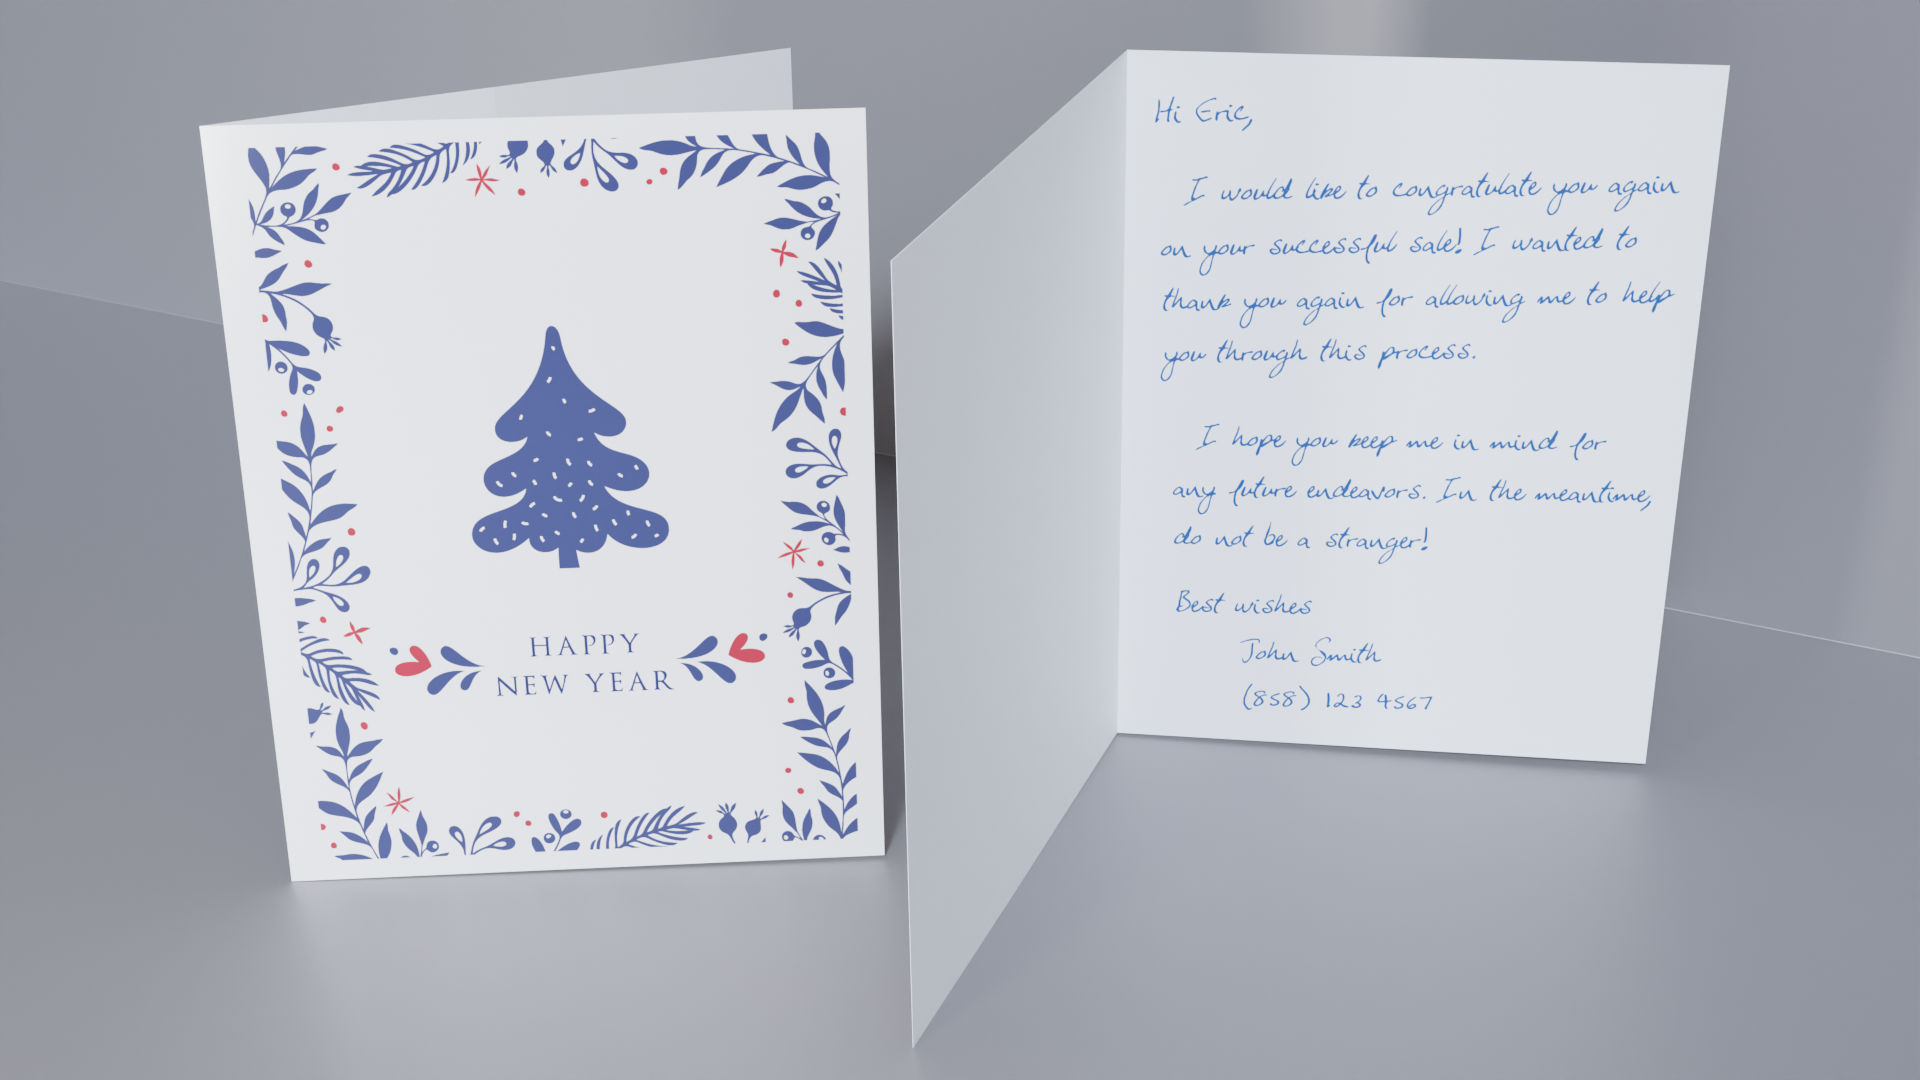 HAPPY
NEW YEAR
Hi Eric,
I would like to congratulate you again
on your successful sale! I wanted to
thank you again for allowing me to help
you through this process.
I hope you keep me in mind for
any future endeavors. In the meantime,
do not be a stranger!
Best wishes
John Smith
(858) 123 4567